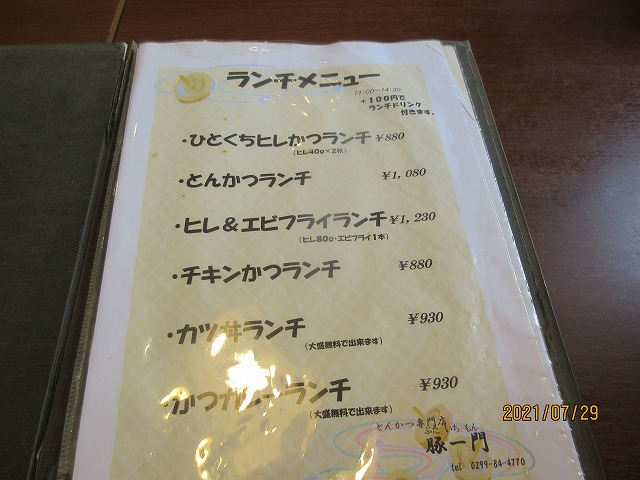 ランチメニュー
11:00~14:30
+100円で
ランチドリンク
付きます。
・ひとくちヒレかつランチ ¥880
(ヒレ40g×2枚)
・とんかつランチ ¥1,080
・ヒレ&エビフライランチ ¥1,230
(ヒレ80g・エビフライ1本)
・チキンかつランチ ¥880
・カツ丼ランチ ¥930
(大盛無料で出来ます)
・かつカレーランチ ¥930
(大盛無料で出来ます)
とんかつ専門店
ぶた いち もん
豚一門
tel 0299-84-4770
2021/07/29